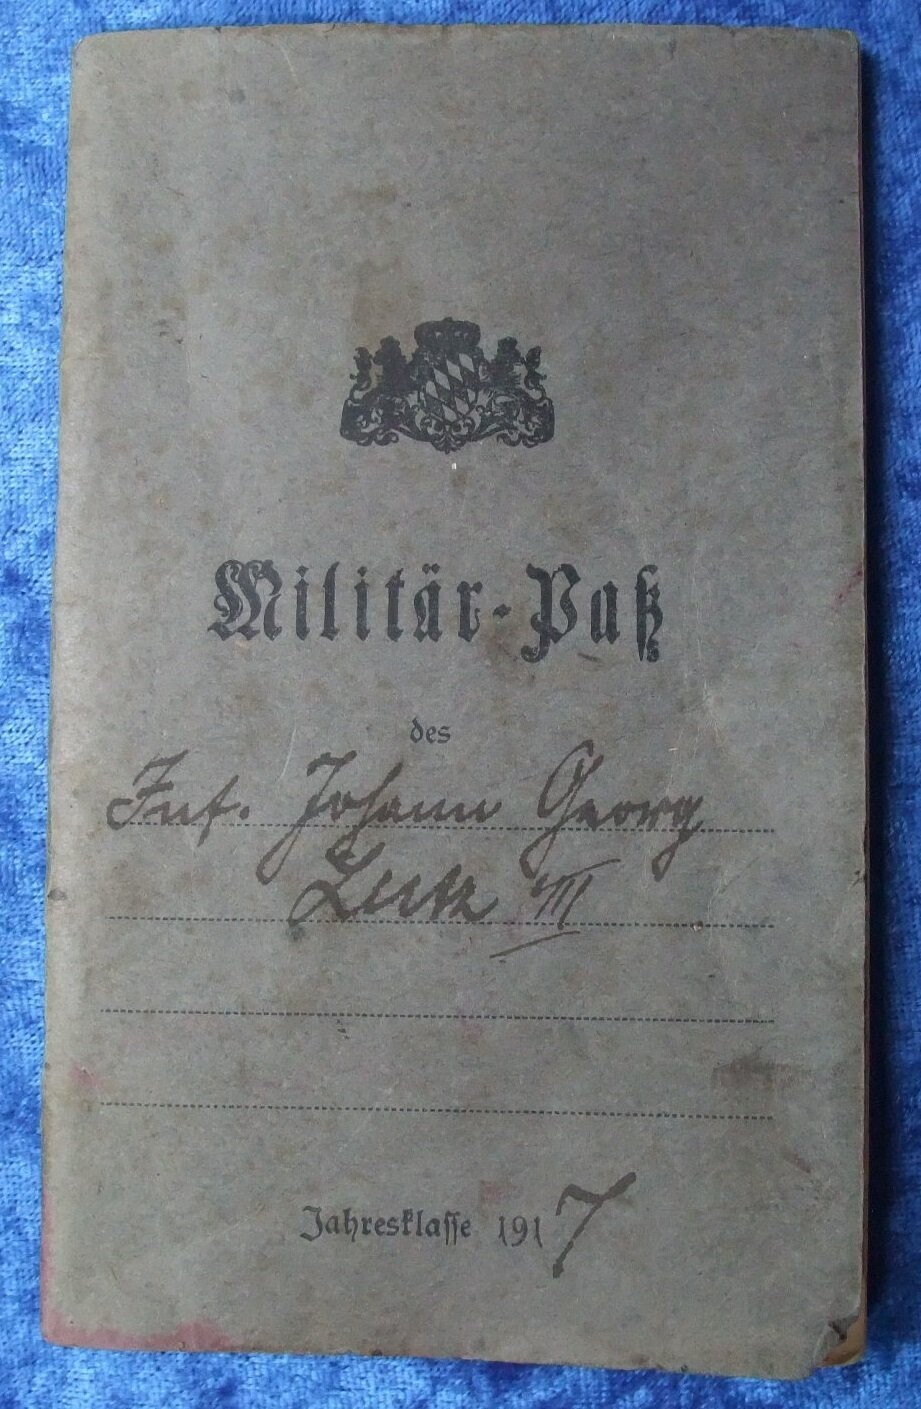 Militär-Paß
des
Inf. Johann Georg
Lutz III
Jahresklasse 1917